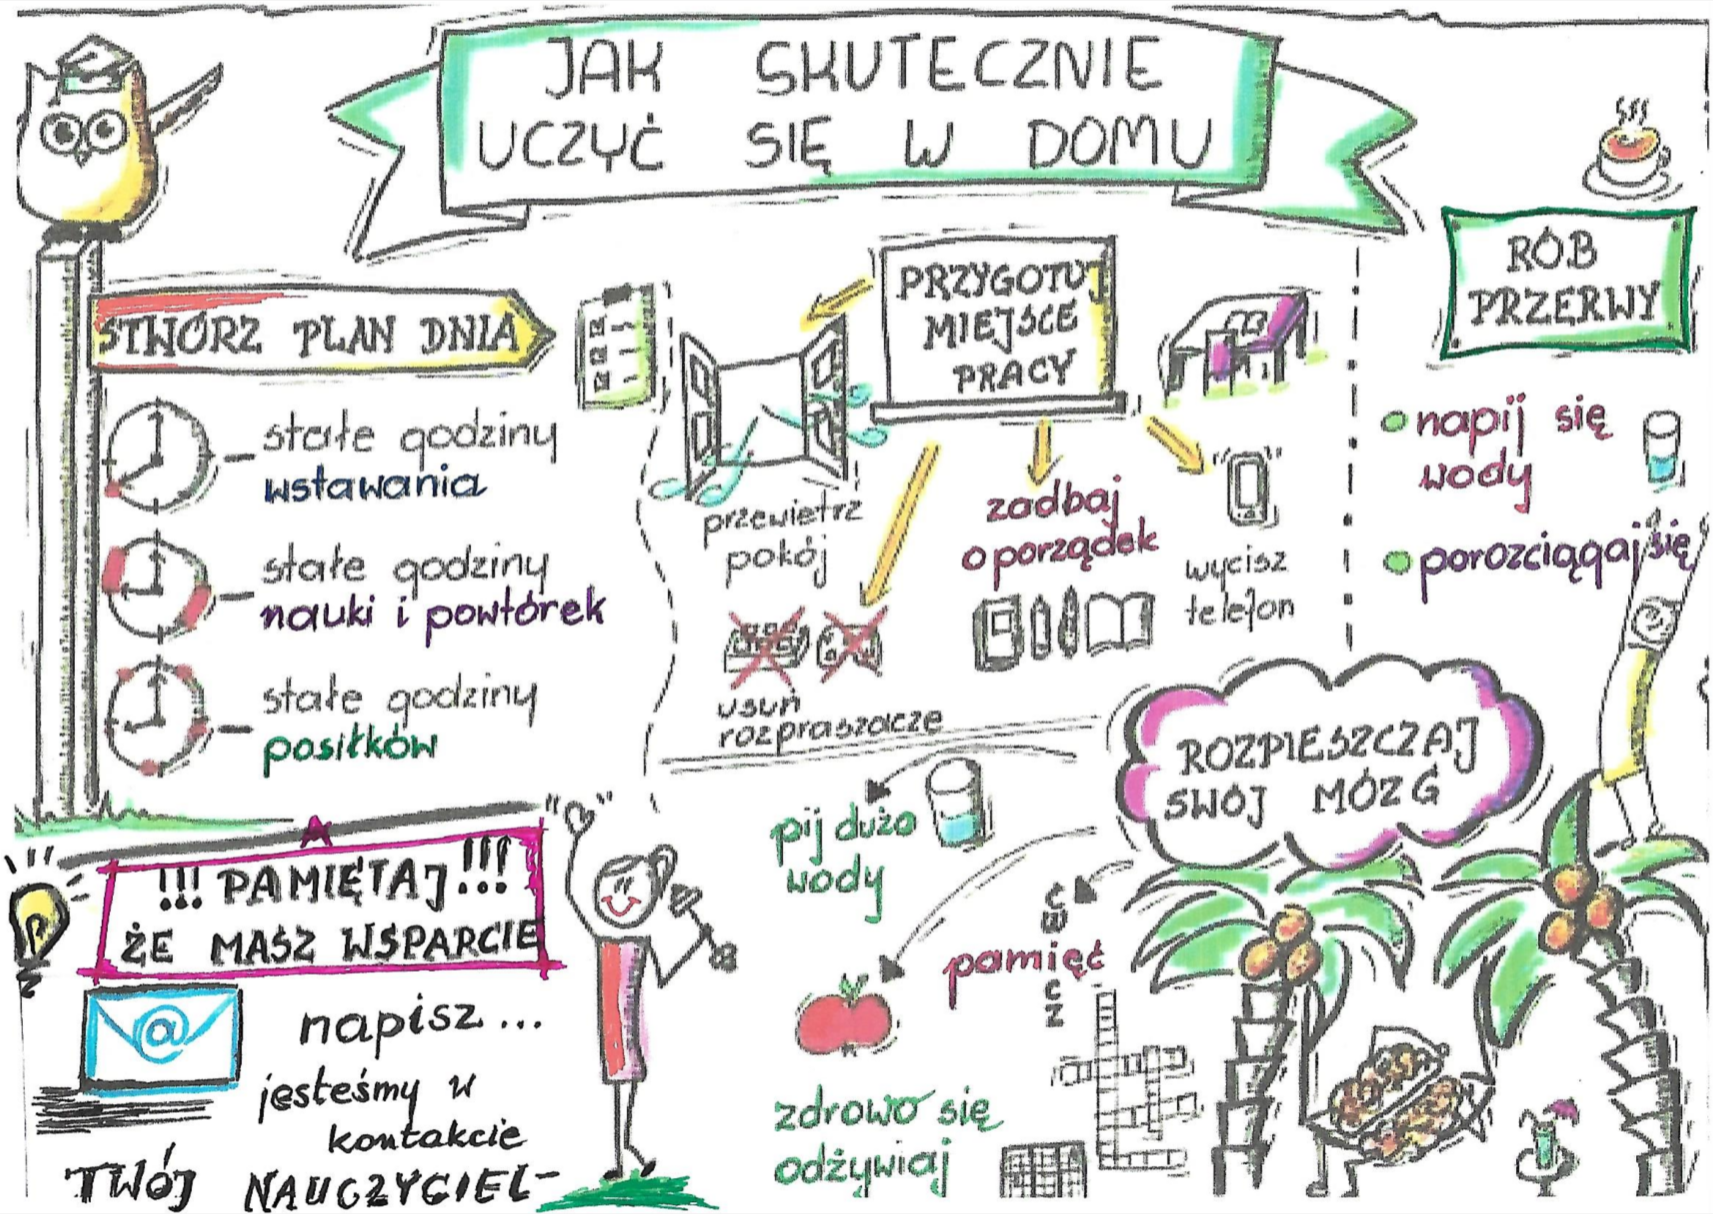 JAK SKUTECZNIE
UCZYĆ SIĘ W DOMU
STWÓRZ PLAN DNIA
stałe godziny
wstawania
stałe godziny
nauki i powtórek
stałe godziny
posiłków
PRZYGOTUJ
MIEJSCE
PRACY
przewietrz
pokój
usuń
rozpraszacze
zadbaj
o porządek
wycisz
telefon
RÓB
PRZERWY
napij się
wody
porozciągaj się
ROZPIESZCZAJ
SWÓJ MÓZG
pij dużo
wody
zdrowo się
odżywiaj
ćwicz
pamięć
!!! PAMIĘTAJ !!!
ŻE MASZ WSPARCIE
@
napisz...
jesteśmy w
kontakcie
TWÓJ NAUCZYCIEL-